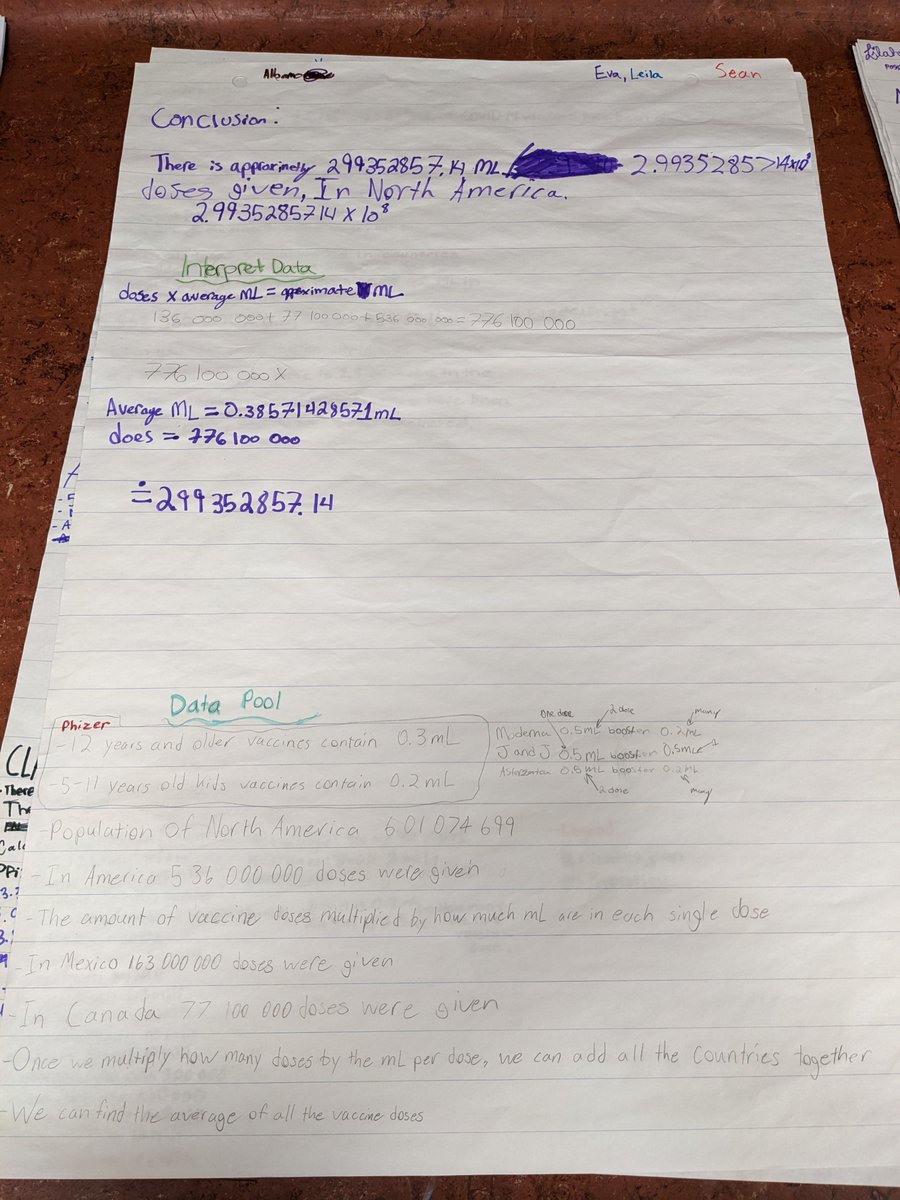 Albano
Eva, Leila
Sean
Conclusion:
There is approximely 299352857.14 mL 2.9935285714x10⁸
doses given, In North America.
2.9935285714 x 10⁸
Interpret Data
doses x average mL = approximate mL
136 000 000 + 77 100 000 + 536 000 000 = 776 100 000
776 100 000 x
Average mL = 0.38571428571mL
does = 776 100 000
≐ 299352857.14
Data Pool
Phizer
-12 years and older vaccines contain 0.3 mL
-5-11 years old kids vaccines contain 0.2 mL
one dose 2 dose many
Moderna 0.5mL booster 0.2mL
J and J 0.5 mL booster 0.5mL 1
0.5 mL booster 0.2mL
2 dose many
-Population of North America 601 074 699
-In America 536 000 000 doses were given
-The amount of vaccine doses multiplied by how much mL are in each single dose
-In Mexico 163 000 000 doses were given
-In Canada 77 100 000 doses were given
-Once we multiply how many doses by the mL per dose, we can add all the countries together
-We can find the average of all the vaccine doses